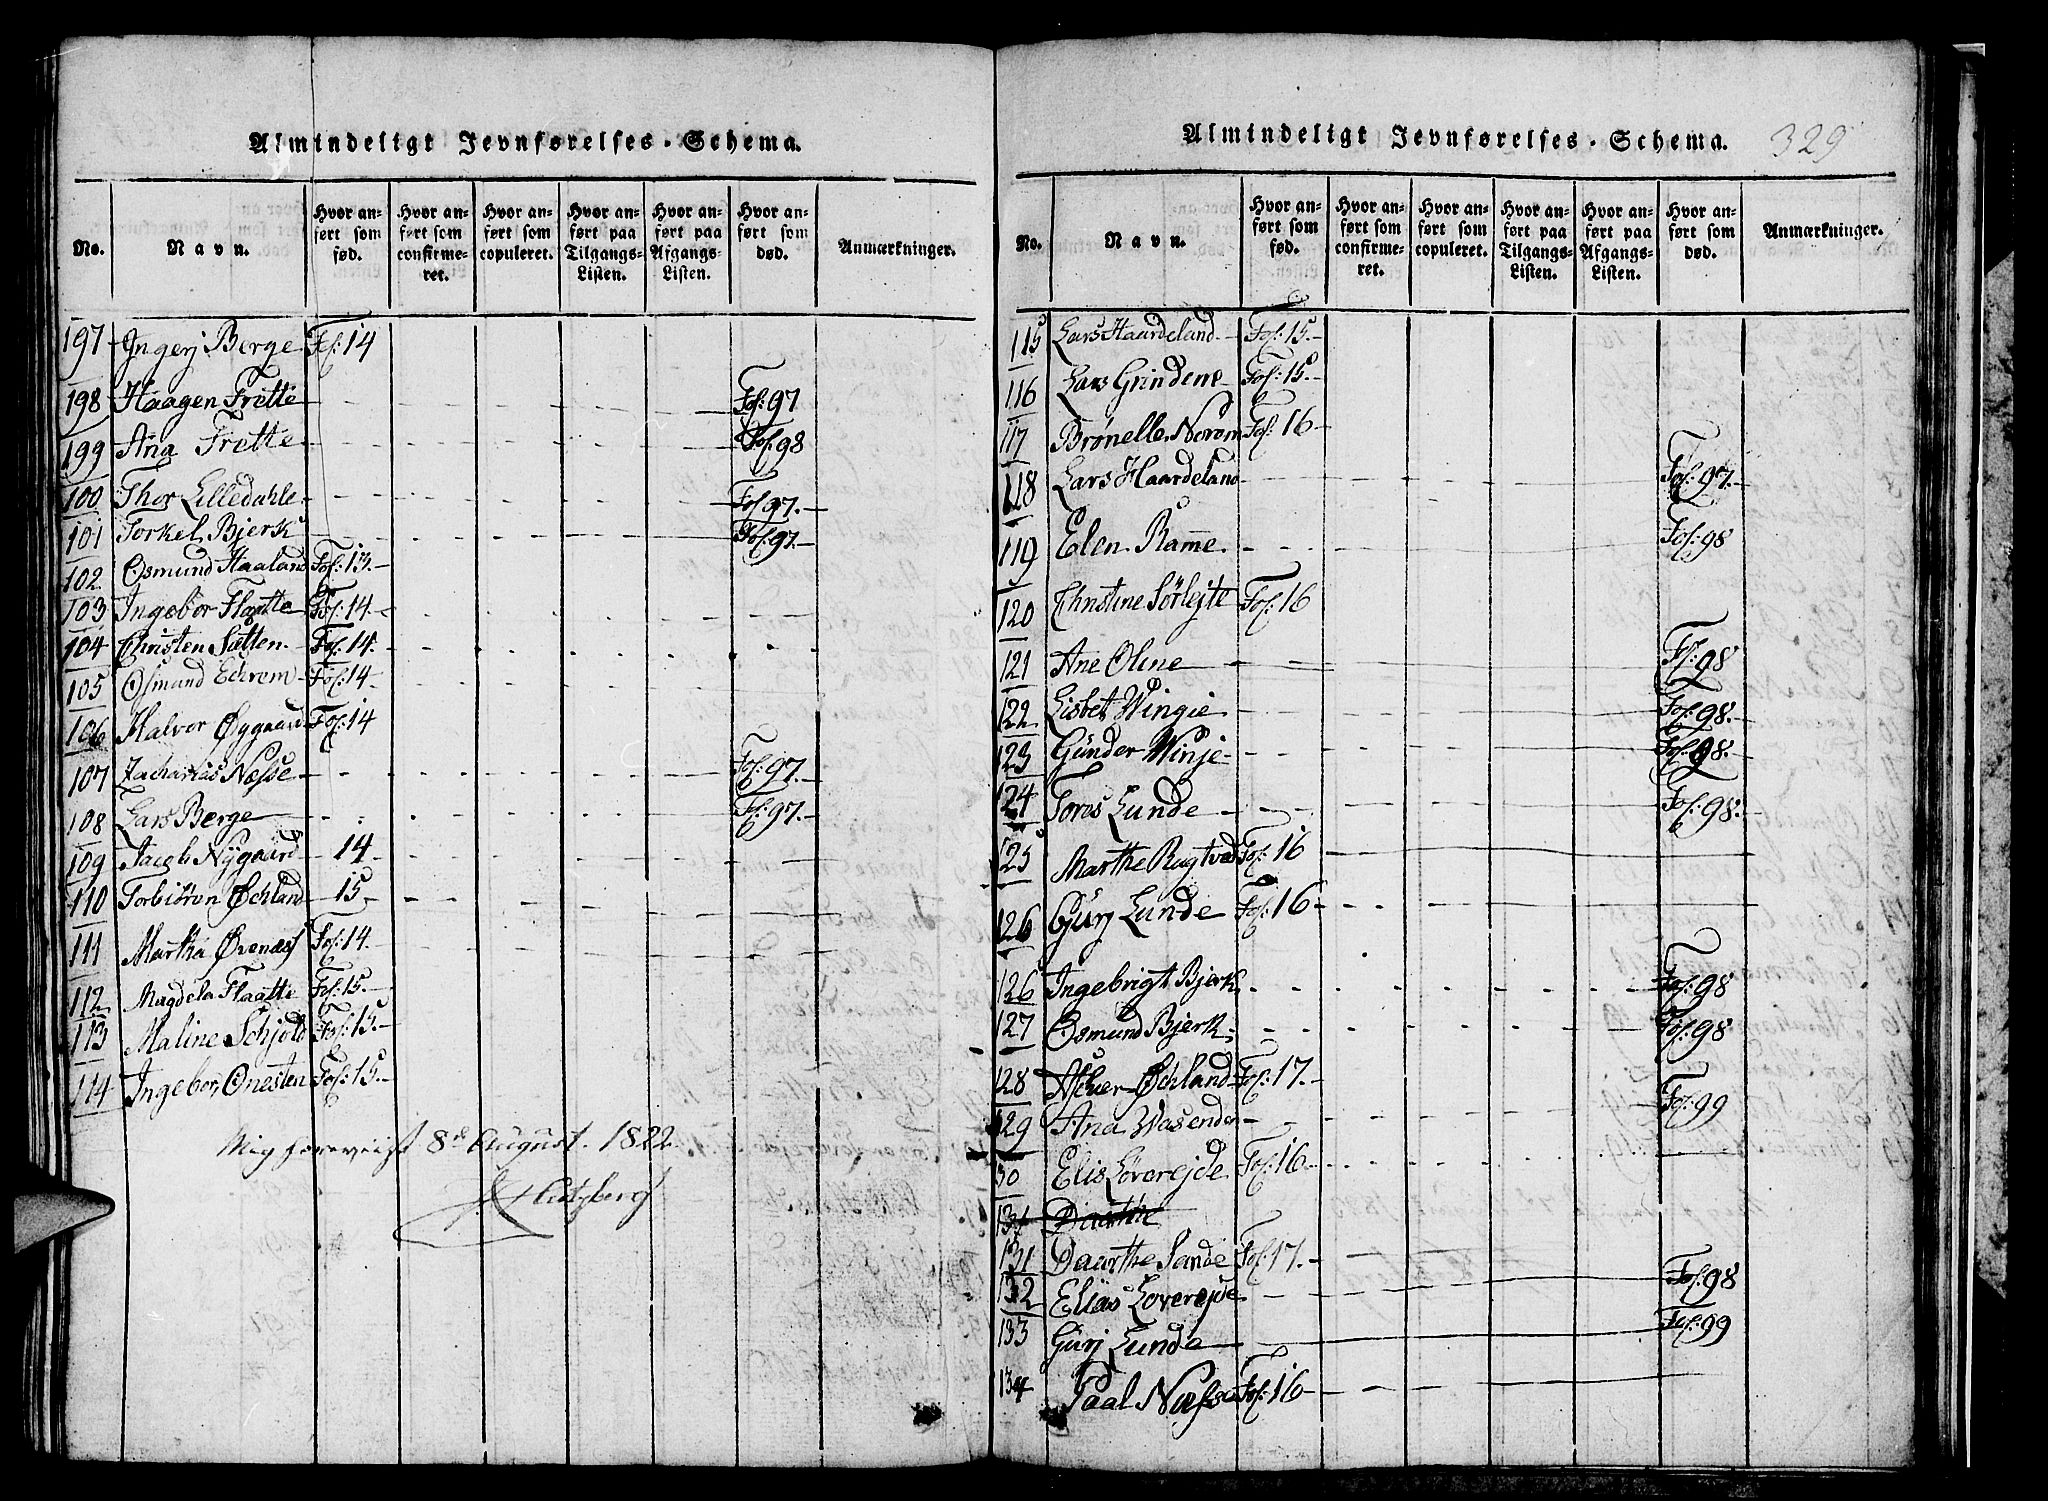 Almindeligt Jevnførelses-Schema.
No. Navn. Hvor anført som fød. Hvor anført som confirmeret. Hvor anført som copuleret. Hvor anført paa Tilgangs-Listen. Hvor anført paa Afgangs-Listen. Hvor anført som død. Anmarkninger.
197 Ingerj Berge Fol: 14
198 Haagen Frette Fol: 97
199 Ana Frette Fol: 98
100 Thor Lilledahle Fol: 97.
101 Torkel Bjerk Fol: 97.
102 Osmund Haaland Fol: 13.
103 Ingebor Flaatte Fol: 14
104 Christen Sætten Fol: 14.
105 Osmund Echrem Fol: 14
106 Halvor Øygaard Fol: 14
107 Zacharias Nesse Fol: 97.
108 Lars Berge Fol: 97.
109 Jacob Nygaard 14
110 Torbiörn Øchland 15
111 Martha Ørenæss Fol: 14.
112 Magdela Flaatte Fol: 15.
113 Maline Schjold Fol: 15.
114 Ingebor, Onesten Fol: 15.
Mig foreviist 8d August. 1822.
Almindeligt Jevnførelses-Schema. 329
No. Navn. Hvor anført som fød. Hvor anført som confirmeret. Hvor anført som copuleret. Hvor anført paa Tilgangs-Listen. Hvor anført paa Afgangs-Listen. Hvor anført som død. Anmarkninger.
115 Lars Haardeland Fol: 15.
116 Lars Grindene Fol: 15.
117 Brønelle Norem Fol: 16
118 Lars Haardeland Fol: 97.
119 Elen Ramme Fol: 98
120 Christine Sörlejte Fol: 16
121 Ane Oline Fol: 98
122 Lisbet Wingie Fol: 98.
123 Gunder Winje Fol: 98.
124 Tores Lunde Fol: 98.
125 Marthe Rugtved Fol: 16
126 Gurj Lunde Fol: 16
126 Ingebrigt Bjerk Fol: 98
127 Osmund Bjerk Fol: 98
128 Aschier Øchland Fol: 17.
129 Ana Wasenden Fol: 99
130 Elis Löverejde Fol: 16
131 Daarthe
131 Daarthe Sande Fol: 17.
132 Elias Loverejde Fol: 98
133 Gurj Lunde Fol: 99
134 Paal Næsse Fol: 16